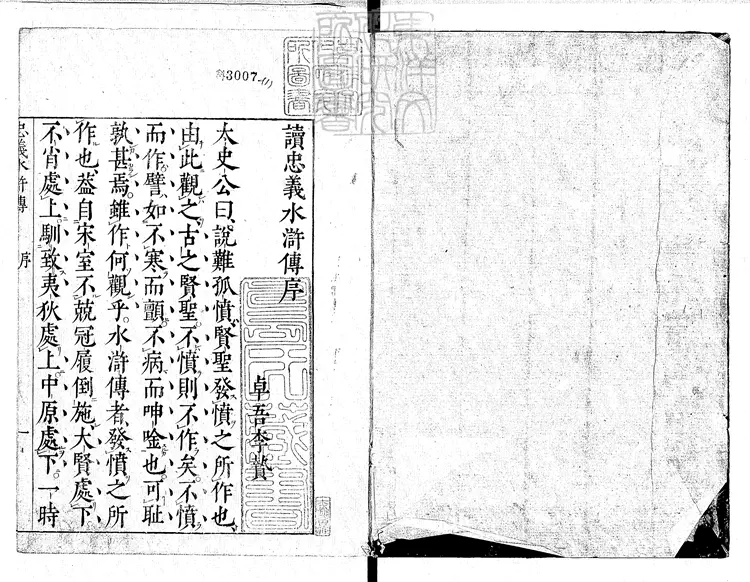 3007
讀忠義水滸傳序
卓吾李贄
太史公曰說難孤憤賢聖發憤之所作也
由此觀之古之賢聖不憤則不作矣不憤
而作譬如不寒而顫不病而呻唫也可耻
孰甚焉雖作何觀乎水滸傳者發憤之所
作也葢自宋室不兢冠履倒施大賢處下
不肖處上馴致夷狄處上中原處下一時
忠義水滸傳 序 一